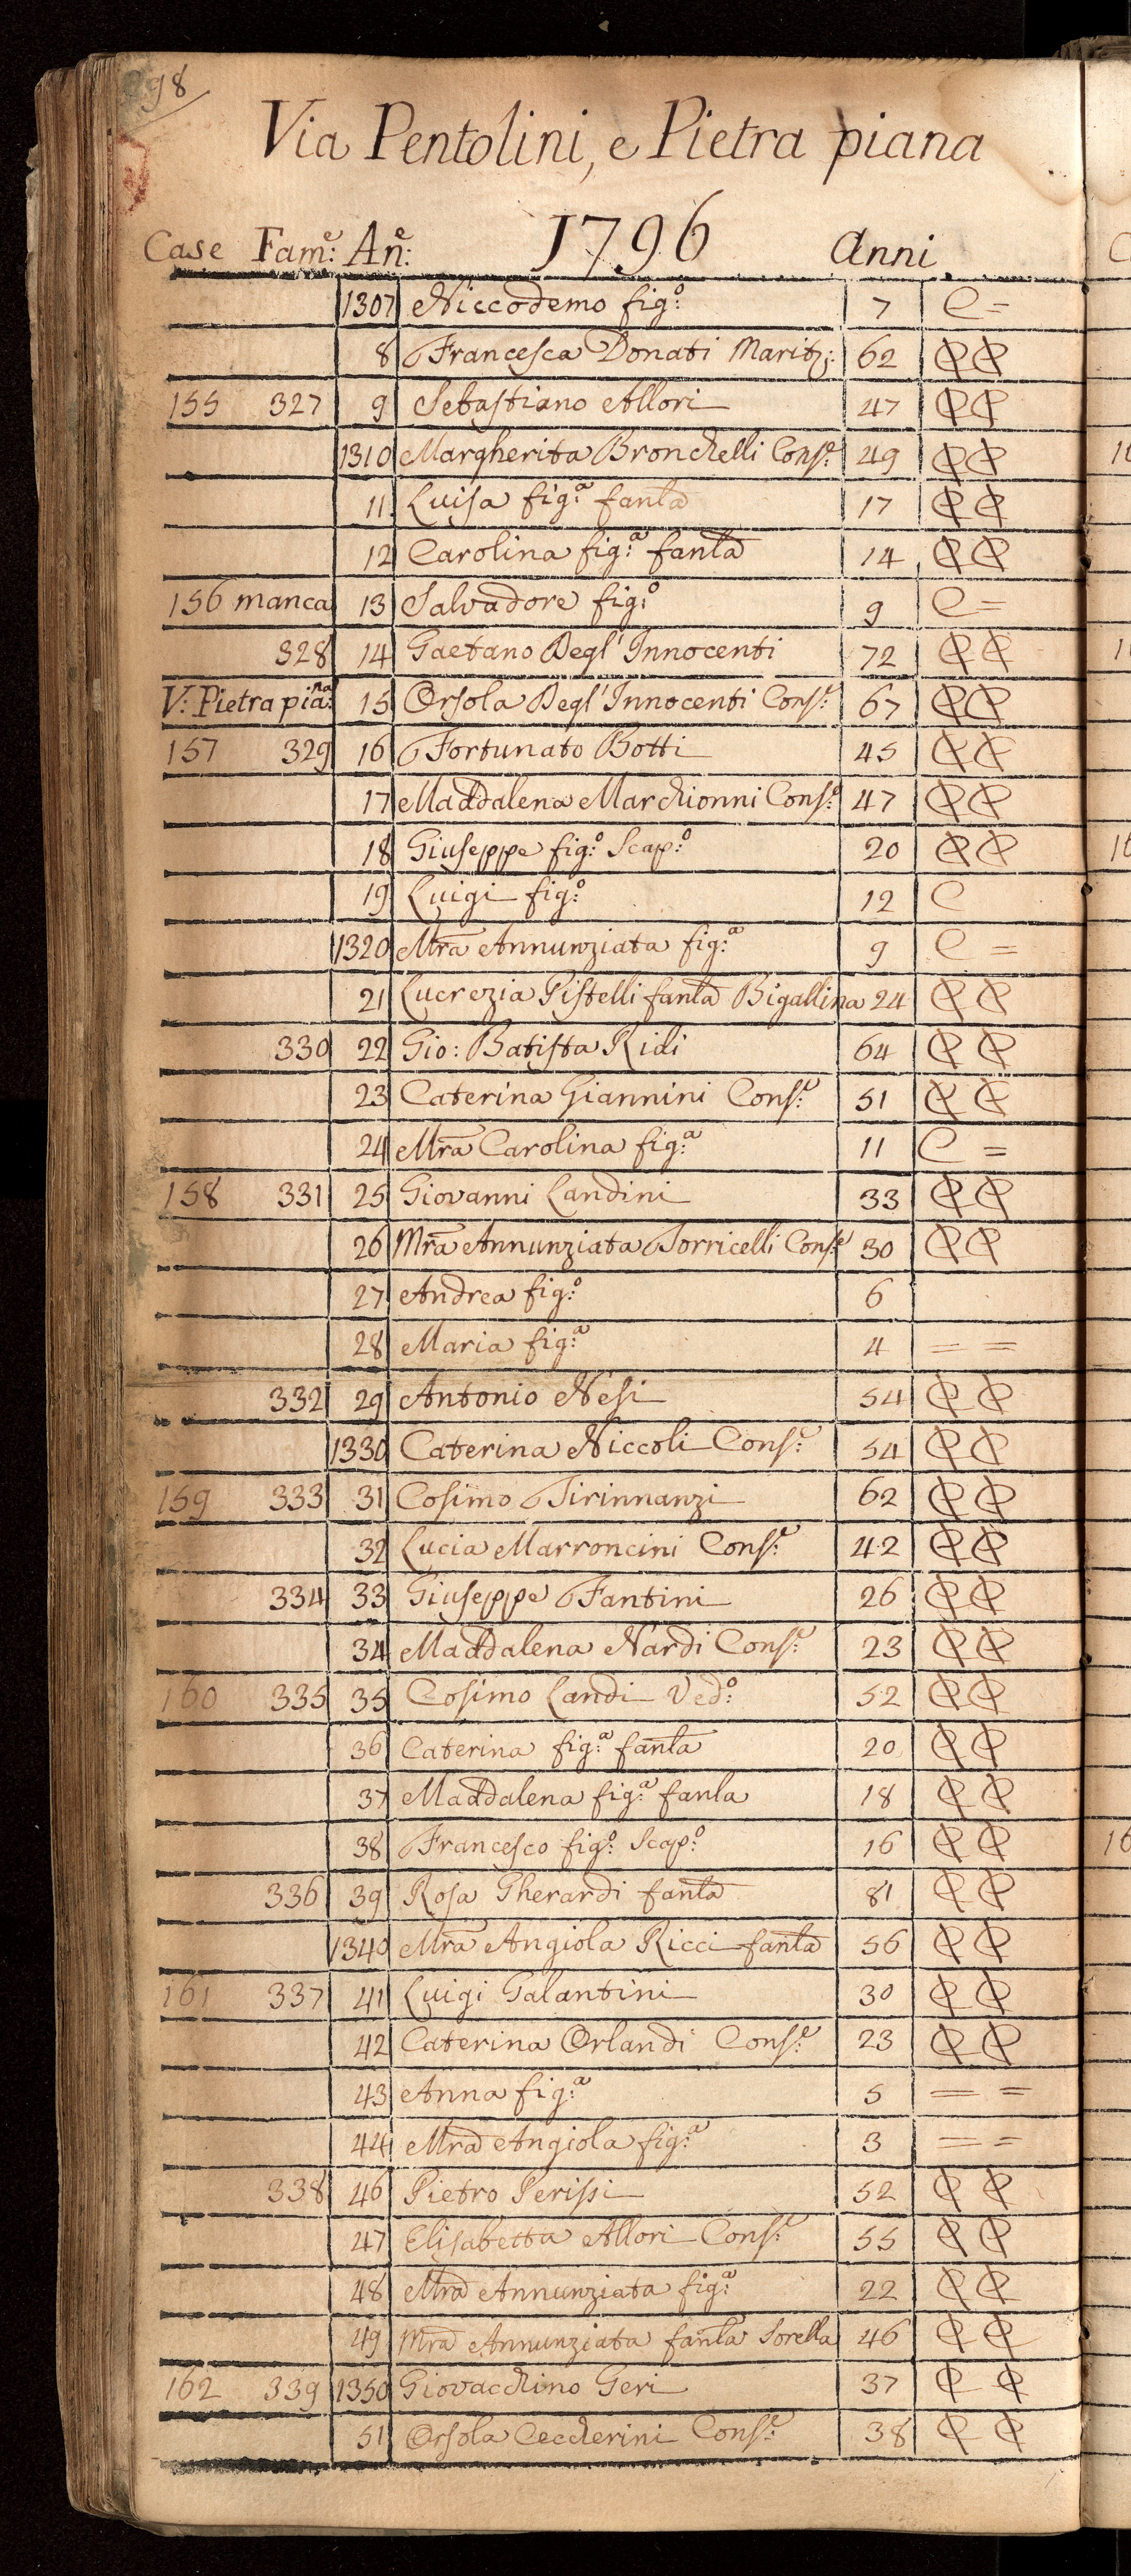 98
Via Pentolini, e Pietra piana
Case Fam.e: An.e: 1796 Anni
1307 Niccodemo fig.o 7 C =
8 Francesca Donati Marit.: 62
155 327 9 Sebastiano Allori 47
1310 Margherita Bronchelli Cons.e 49
11 Luisa fig.a fanla 17
12 Carolina fig.a fanla 14
156 manca 13 Salvadore fig.o 9 C =
328 14 Gaetano Degl' Innocenti 72
V: Pietra pia.na 15 Orsola Degl' Innocenti Cons.e 67
157 329 16 Fortunato Botti 45
17 Maddalena Marchionni Cons.e 47
18 Giuseppe fig.o Scap.o 20
19 Luigi fig.o 12 C
1320 Mra Annunziata fig.a 9 C =
21 Lucrezia Pistelli fanla Bigallina 24
330 22 Gio: Batista Ridi 64
23 Caterina Giannini Cons.e 51
24 Mra Carolina fig.a 11 C =
158 331 25 Giovanni Landini 33
26 Mra Annunziata Torricelli Cons.e 30
27 Andrea fig.o 6
28 Maria fig.a 4 = =
332 29 Antonio Nesi 54
1330 Caterina Niccoli Cons.e 54
159 333 31 Cosimo Tirinnanzi 62
32 Lucia Marroncini Cons.e 42
334 33 Giuseppe Fantini 26
34 Maddalena Nardi Cons.e 23
160 335 35 Cosimo Landi Ved.o 52
36 Caterina fig.a fanla 20
37 Maddalena fig.a fanla 18
38 Francesco fig.o Scap.o 16
336 39 Rosa Gherardi fanla 81
1340 Mra Angiola Ricci fanla 56
161 337 41 Luigi Galantini 30
42 Caterina Orlandi Cons.e 23
43 Anna fig.a 5 = =
44 Mra Angiola fig.a 3 = =
338 46 Pietro Perissi 52
47 Elisabetta Allori Cons.e 55
48 Mra Annunziata fig.a 22
49 Mra Annunziata fanla Sorella 46
162 339 1350 Giovacchino Geri 37
51 Orsola Ceccherini Cons.e 38